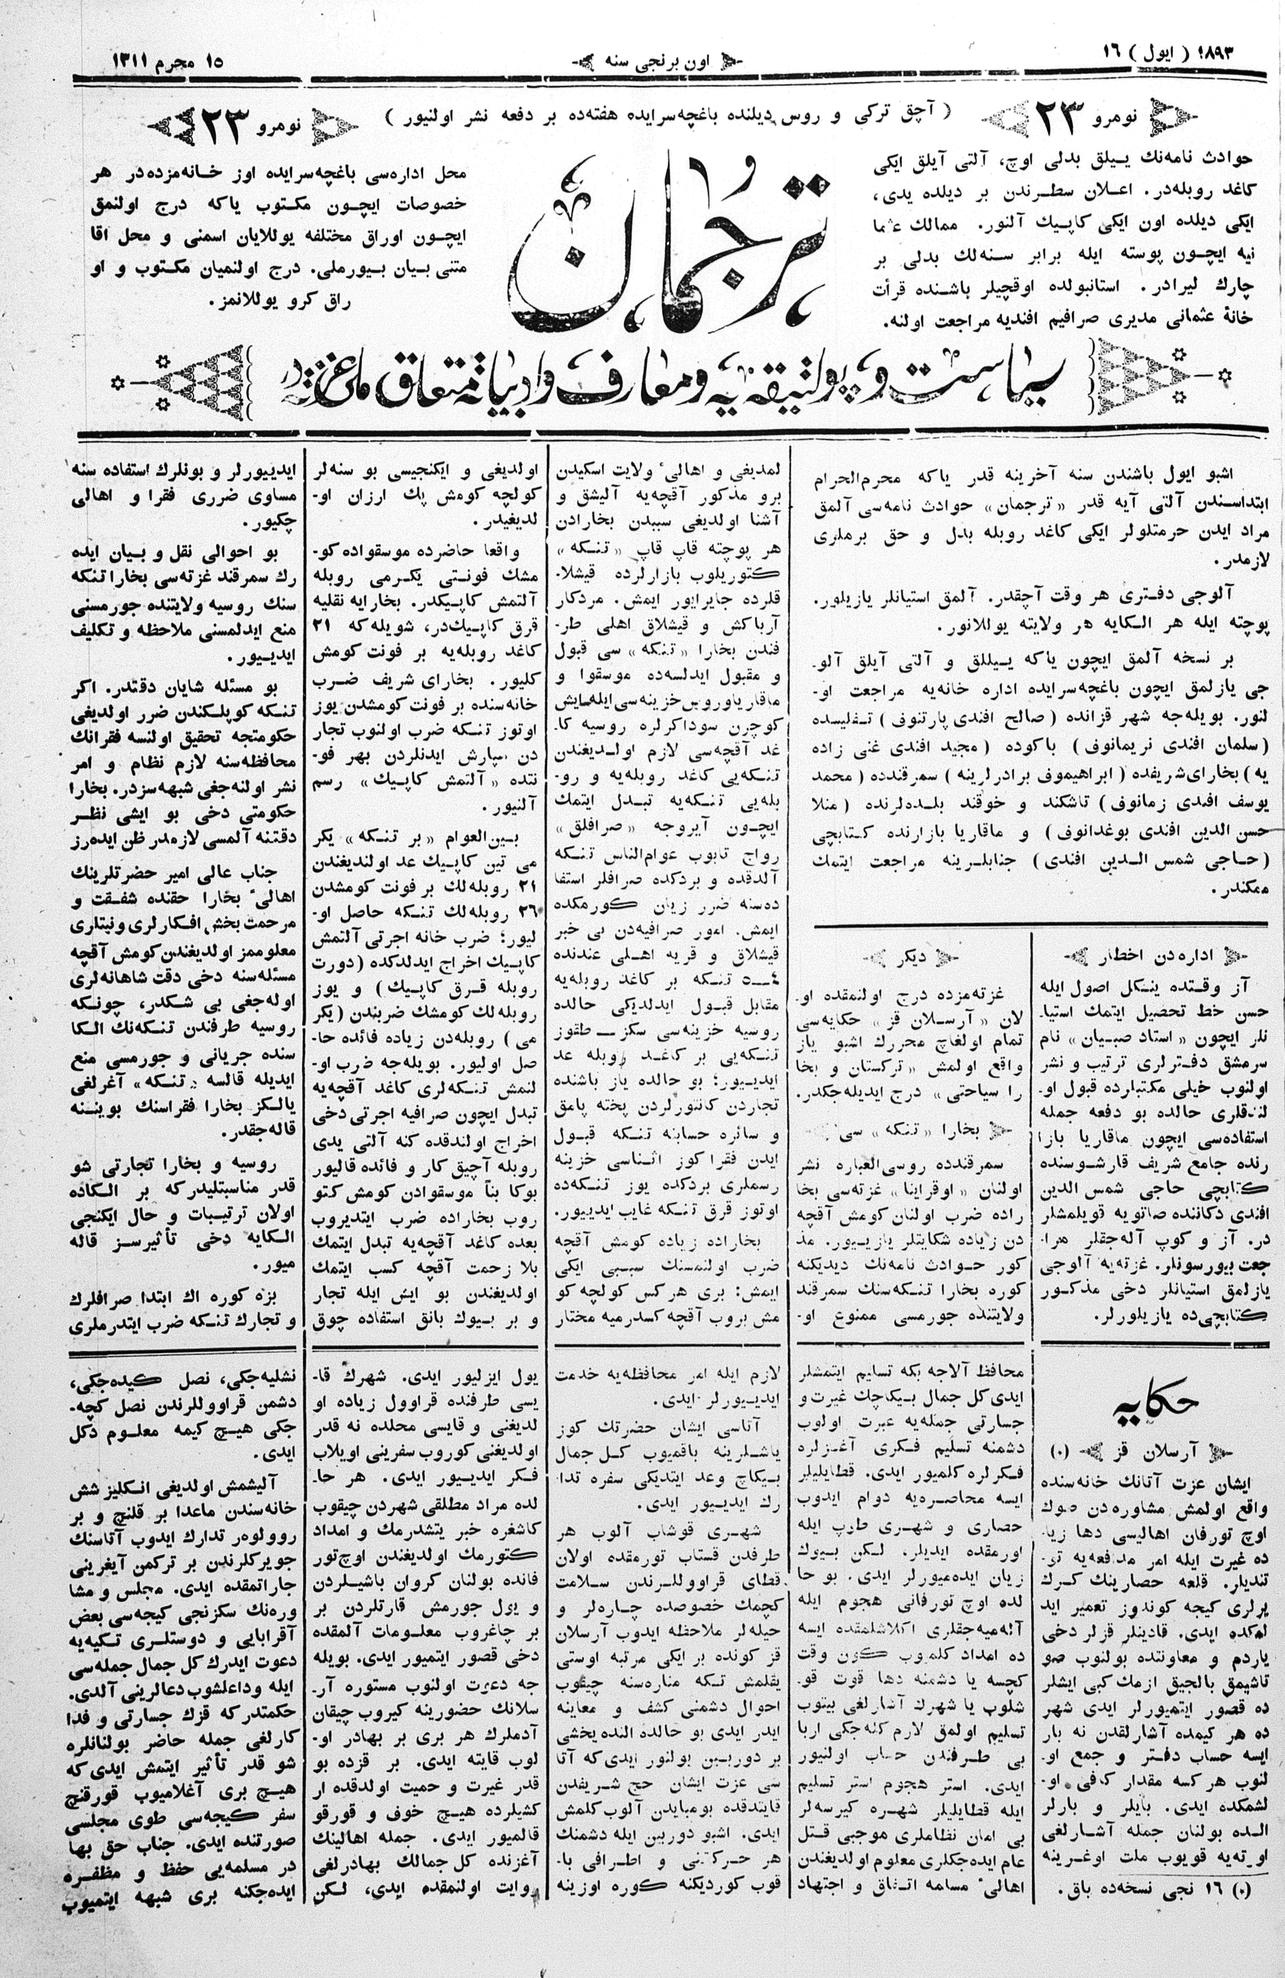 ١٨٩٣ ( ایول ) ١٦
اون برنجی سنه
١٥ محرم ١٣١١
نومرو ٢٣
( آچق ترکی و روس دیلنده باغچه‌سرایده هفته‌ده بر دفعه نشر اولنیور )
نومرو ٢٣
حوادث نامه‌نك ییلق بدلی اوچ، آلتی آیلق ایکی
کاغد روبله‌در. اعلان سطرندن بر دیلده یدی،
ایکی دیلده اون ایکی کاپیك آلنور. ممالك عثما
نیه ایچون پوسته ایله برابر سنه‌لك بدلی بر
چارك لیرادر. استانبولده اوقچیلر باشنده قرأت
خانهٔ عثمانی مدیری صرافیم افندیه مراجعت اولنه.
ترجمان
محل اداره‌سی باغچه‌سرایده اوز خانه‌مزده‌در هر
خصوصات ایچون مکتوب یاکه درج اولنمق
ایچون اوراق مختلفه یوللایان اسمنی و محل اقا
متنی بیان بیورملی. درج اولنمیان مکتوب و او
راق کرو یوللانمز.
سیاست و پولتیقه‌یه و معارف و ادبیاته متعلق ملی غزته‌در
اشبو ایول باشندن سنه آخرینه قدر یاکه محرم‌الحرام
ابتداسندن آلتی آیه قدر «ترجمان» حوادث نامه‌سی آلمق
مراد ایدن حرمتلولر ایکی کاغد روبله بدل و حق برملری
لازمدر.
آلوجی دفتری هر وقت آچقدر. آلمق استیانلر یازیلور.
پوچته ایله هر الکایه هر ولایته یوللانور.
بر نسخه آلمق ایچون یاکه ییللق و آلتی آیلق آلو-
جی یازلمق ایچون باغچه‌سرایده اداره خانه‌یه مراجعت او-
لنور. بویله‌جه شهر قزانده (صالح افندی پارتنوف) تفلیسده
(سلمان افندی نریمانوف) باکوده (مجید افندی غنی زاده
یه) بخارای شریفده (ابراهیموف برادرلرینه) سمرقندده (محمد
یوسف افندی زمانوف) تاشکند و خوقند بلده‌لرنده (منلا
حسن الدین افندی بوغدانوف) و ماقاریا بازارنده کتابچی
(حاجی شمس‌الدین افندی) جنابلرینه مراجعت ایتمك
ممکندر.
اداره‌دن اخطار
آز وقتده ینکل اصول ایله
حسن خط تحصیل ایتمك استیا-
نلر ایچون «استاد صبیان» نام
سرمشق دفترلری ترتیب و نشر
اولنوب خیلی مکتبلرده قبول او-
لندقلری حالده بو دفعه جمله
استفاده‌سی ایچون ماقاریا بازا
رنده جامع شریف قارشوسنده
کتابچی حاجی شمس الدین
افندی دکاننده صاتویه قویلمشلر
در. آز و کوپ آله‌جقلر مرا-
جعت بیورسونلر. غزته‌یه آلوجی
یازلمق استیانلر دخی مذکور
کتابچی‌ده یازیلورلر.
دیکر
غزته‌مزده درج اولنمقده او-
لان «آرسلان قز» حکایه‌سی
تمام اولغاچ محررك اشبو یاز
واقع اولمش «ترکستان و بخا
را سیاحتی» درج ایدیله‌جکدر.
بخارا «تنکه» سی
سمرقندده روسی‌العباره نشر
اولنان «اوقراینا» غزته‌سی بخا
راده ضرب اولنان کومش آقچه
دن زیاده شکایتلر یازیور. مذ
کور حوادث نامه‌نك دیدیکنه
کوره بخارا تنکه‌سنك سمرقند
ولایتنده جورمسی ممنوع او-
لمدیغی و اهالیٔ ولایت اسکیدن
برو مذکور آقچه‌یه آلیشق و
آشنا اولدیغی سببدن بخارادن
هر پوچته قاپ قاپ «تنکه»
کتوریلوب بازارلرده قیشلا-
قلرده جایرایور ایمش. مردکار
آرباکش و قیشلاق اهلی طر-
فندن بخارا «تنکه» سی قبول
و مقبول ایدلسه‌ده موسقوا و
ماقاریا و روس خزینه‌سی ایله‌ایش
کوچرن سوداکرلره روسیه کا-
غد آقچه‌سی لازم اولدیغندن
تنکه‌یی کاغد روبله‌یه و رو-
بله‌یی تنکه‌یه تبدل ایتمك
ایچون آیروجه «صرافلق»
رواج تابوب عوام‌الناس تنکه
آلدقده و بردکده صرافلر استفا
ده‌سنه ضرر زیان کورمکده
ایمش. امور صرافیه‌دن بی خبر
قیشلاق و قریه اهلی عندنده
٤—٥ تنکه بر کاغد روبله‌یه
مقابل قبول ایدلدیکی حالده
روسیه خزینه‌سی سکز — طقوز
تنکه‌یی بر کاغد روبله عد
ایدییور؛ بو حالده یاز باشنده
تجاردن کانتورلردن پخته پامق
و سائره حسابنه تنکه قبول
ایدن فقرا کوز اثناسی خزینه
رسملری بردکده یوز تنکه‌ده
اوتوز قرق تنکه غایب ایدییور.
بخاراده زیاده کومش آقچه
ضرب اولنمسنك سببی ایکی
ایمش: بری هرکس کولچه کو
مش بروب آقچه کسدرمیه مختار
اولدیغی و ایکنجیسی بو سنه‌لر
کولچه کومش پك ارزان او-
لدیغیدر.
واقعا حاضرده موسقواده کو-
مشك فونتی یکرمی روبله
آلتمش کاپیکدر. بخارایه نقلیه
قرق کاپیك‌در، شویله‌که ٢١
کاغد روبله‌یه بر فونت کومش
کلیور. بخارای شریف ضرب
خانه‌سنده بر فونت کومشدن یوز
اوتوز تنکه ضرب اولنوب تجار
دن سپارش ایدنلردن بهر فو-
نتده «آلتمش کاپیك» رسم
آلنیور.
بین‌العوام «بر تنکه» یکر
می تین کاپیك عد اولندیغندن
٢١ روبله‌لك بر فونت کومشدن
٢٦ روبله‌لك تنکه حاصل او-
لیور؛ ضرب خانه اجرتی آلتمش
کاپیك اخراج ایدلدکده (دورت
روبله قرق کاپیك) و یوز
روبله‌لك کومشك ضربندن (یکر
می) روبله‌دن زیاده فائده حا-
صل اولیور. بویله‌جه ضرب او-
لنمش تنکه‌لری کاغد آقچه‌یه
تبدل ایچون صرافیه اجرتی دخی
اخراج اولندقده کنه آلتی یدی
روبله آچیق کار و فائده قالیور
بوکا بنأ موسقوادن کومش کتو
روب بخاراده ضرب ایتدیروب
بعده کاغد آقچه‌یه تبدل ایتمك
بلا زحمت آقچه کسب ایتمك
اولدیغندن بو ایش ایله تجار
و بر بیوك بانق استفاده چوق
ایدییورلر و بونلرك استفاده سنه
مساوی ضرری فقرا و اهالی
چکیور.
بو احوالی نقل و بیان ایده
رك سمرقند غزته‌سی بخارا تنکه
سنك روسیه ولایتنده جورمسنی
منع ایدلمسنی ملاحظه و تکلیف
ایدییور.
بو مسئله شایان دقتدر. اکر
تنکه کوپلکندن ضرر اولدیغی
حکومتجه تحقیق اولنسه فقرانك
محافظه‌سنه لازم نظام و امر
نشر اولنه‌جغی شبهه‌سزدر. بخارا
حکومتی دخی بو ایشی نظر
دقتنه آلمسی لازمدر ظن ایده‌رز
جناب عالی امیر حضرتلرینك
اهالیٔ بخارا حقنده شفقت و
مرحمت بخش افکارلری و نیتلری
معلوممز اولدیغندن کومش آقچه
مسئله‌سنه دخی دقت شاهانه‌لری
اوله‌جغی بی شکدر، چونکه
روسیه طرفندن تنکه‌نك الکا
سنده جریانی و جورمسی منع
ایدیله قالسه «تنکه» آغرلغی
یالکز بخارا فقراسنك بویننه
قاله‌جقدر.
روسیه و بخارا تجارتی شو
قدر مناسبتلیدرکه بر الکاده
اولان ترتیبات و حال ایکنجی
الکایه دخی تأثیرسز قاله
میور.
بزه کوره اك ابتدا صرافلرك
و تجارك تنکه ضرب ایتدرملری
حکایه
آرسلان قز (٠)
ایشان عزت آتانك خانه‌سنده
واقع اولمش مشاوره‌دن صوك
اوچ تورفان اهالیسی دها زیا-
ده غیرت ایله امر مدافعه‌یه تر-
تندیلر. قلعه حصارینك کرك
یرلری کیجه کوندوز تعمیر اید
لمکده ایدی. قادینلر قزلر دخی
یاردم و معاونتده بولنوب صو
تاشیمق بالجیق ازمك کبی ایشلر
ده قصور ایتمیورلر ایدی شهر
ده هر کیمده آشارلقدن نه بار
ایسه حساب دفتر و جمع او-
لنوب هر کسه مقدار کافی او-
لشمکده ایدی. بایلر و بارلر
الده بولنان جمله آشارلغی
اورته‌یه قویوب ملت اوغرینه
(٠) ١٦ نجی نسخه‌ده باق.
محافظ آلاجه بکه تسلیم ایتمشلر
ایدی کل جمال بیکاچك غیرت و
جسارتی جمله‌یه عبرت اولوب
دشمنه تسلیم فکری آغزلره
فکرلره کلمیور ایدی. قطایلیلر
ایسه محاصره‌یه دوام ایدوب
حصاری و شهری طوپ ایله
اورمقده ایدیلر. لکن بیوك
زیان ایده‌میورلر ایدی. بو حا
لده اوچ تورفانی هجوم ایله
آله‌میه‌جقلری اکلاشلمقده ایسه
ده امداد کلمیوب کون وقت
کچسه یا دشمنه دها قوت قو-
شلوب یا شهرك آشارلغی بیتوب
تسلیم اولمق لازم کله‌جکی اربا
بی طرفندن حساب اولنیور
ایدی. استر هجوم استر تسلیم
ایله قطایلیلر شهره کیرسه‌لر
بی امان نظاملری موجبی قتل
عام ایده‌جکلری معلوم اولدیغندن
اهالیٔ مسلمه اتفاق و اجتهاد
لازم ایله امر محافظه‌یه خدمت
ایدییورلر ایدی.
آتاسی ایشان حضرتك کوز
یاشلرینه باقمیوب کل جمال
بیکاچ وعد ایتدیکی سفره تدا-
رك ایدییور ایدی.
شهری قوشاب آلوب هر
طرفدن قستاب تورمقده اولان
قطای قراووللرندن سلامت
کچمك خصوصده چاره‌لر و
حیله‌لر ملاحظه ایدوب آرسلان
قز کونده بر ایکی مرتبه اوستی
یقلمش تکه مناره‌سنه چیقوب
احوال دشمنی کشف و معاینه
ایدر ایدی بو حالده النده یخشی
بر دوربین بولنور ایدی‌که آتا
سی عزت ایشان حج شریفدن
قایتدقده بومبایدن آلوب کلمش
ایدی. اشبو دوربین ایله دشمنك
هر حرکتنی و اطرافی با-
قوب کوردیکنه کوره اوزینه
یول ایزلیور ایدی. شهرك قا-
یسی طرفنده قراوول زیاده او
لدیغنی و قایسی محلده نه قدر
اولدیغنی کوروب سفرینی اویلاب
فکر ایدییور ایدی. هر حا-
لده مراد مطلقی شهردن چیقوب
کاشغره خبر یتشدرمك و امداد
کتورمك اولدیغندن اوچ‌تور
فانده بولنان کروان باشیلردن
و یول جورمش قارتلردن بر
بر چاغروب معلومات آلمقده
دخی قصور ایتمیور ایدی. بویله
جه دعوت اولنوب مستوره آر-
سلانك حضورینه کیروب چیقان
آدملرك هر بری بر بهادر او-
لوب قایته ایدی. بر قزده بو
قدر غیرت و حمیت اولدقده ار
کشیلرده هیچ خوف و قورقو
قالمیور ایدی. جمله اهالینك
آغزنده کل جمالك بهادرلغی
روایت اولنمقده ایدی، لکن
نشلیه‌جکی، نصل کیده‌جکی،
دشمن قراووللرندن نصل کچه-
جکی هیچ کیمه معلوم دکل
ایدی.
آلیشمش اولدیغی انکلیز شش
خانه‌سندن ماعدا بر قلنچ و بر
روولوه‌ر تدارك ایدوب آتاسنك
جویرکلرندن بر ترکمن آیغرینی
جاراتمقده ایدی. مجلس و مشا
وره‌نك سکزنجی کیجه‌سی بعض
آقرابایی و دوستلری تکیه‌یه
دعوت ایدرك کل جمال جمله‌سی
ایله وداعلشوب دعالرینی آلدی.
حکمتدر که قزك جسارتی و فدا
کارلغی جمله حاضر بولنانلره
شو قدر تأثیر ایتمش ایدی که
هیچ بری آغلامیوب قورقنچ
سفر کیجه‌سی طوی مجلسی
صورتنده ایدی. جناب حق بها
در مسلمه‌یی حفظ و مظفره
ایده‌جکنه بری شبهه ایتمیوب